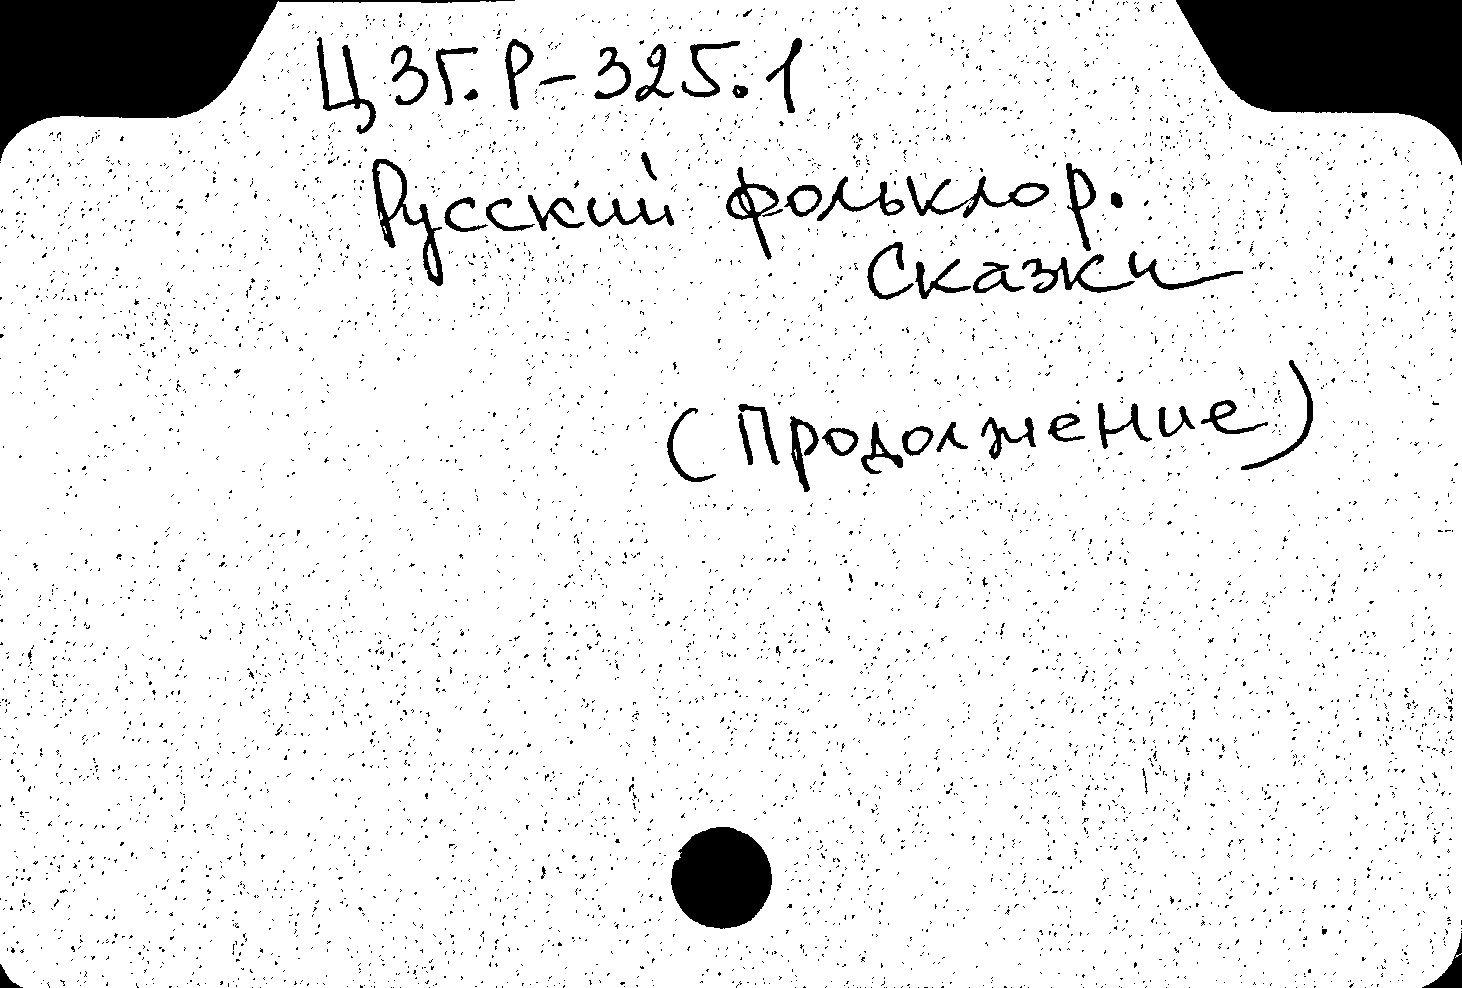 Ц3Г.Р-325.1
Русский фольклор.
Сказки
(Продолжение)